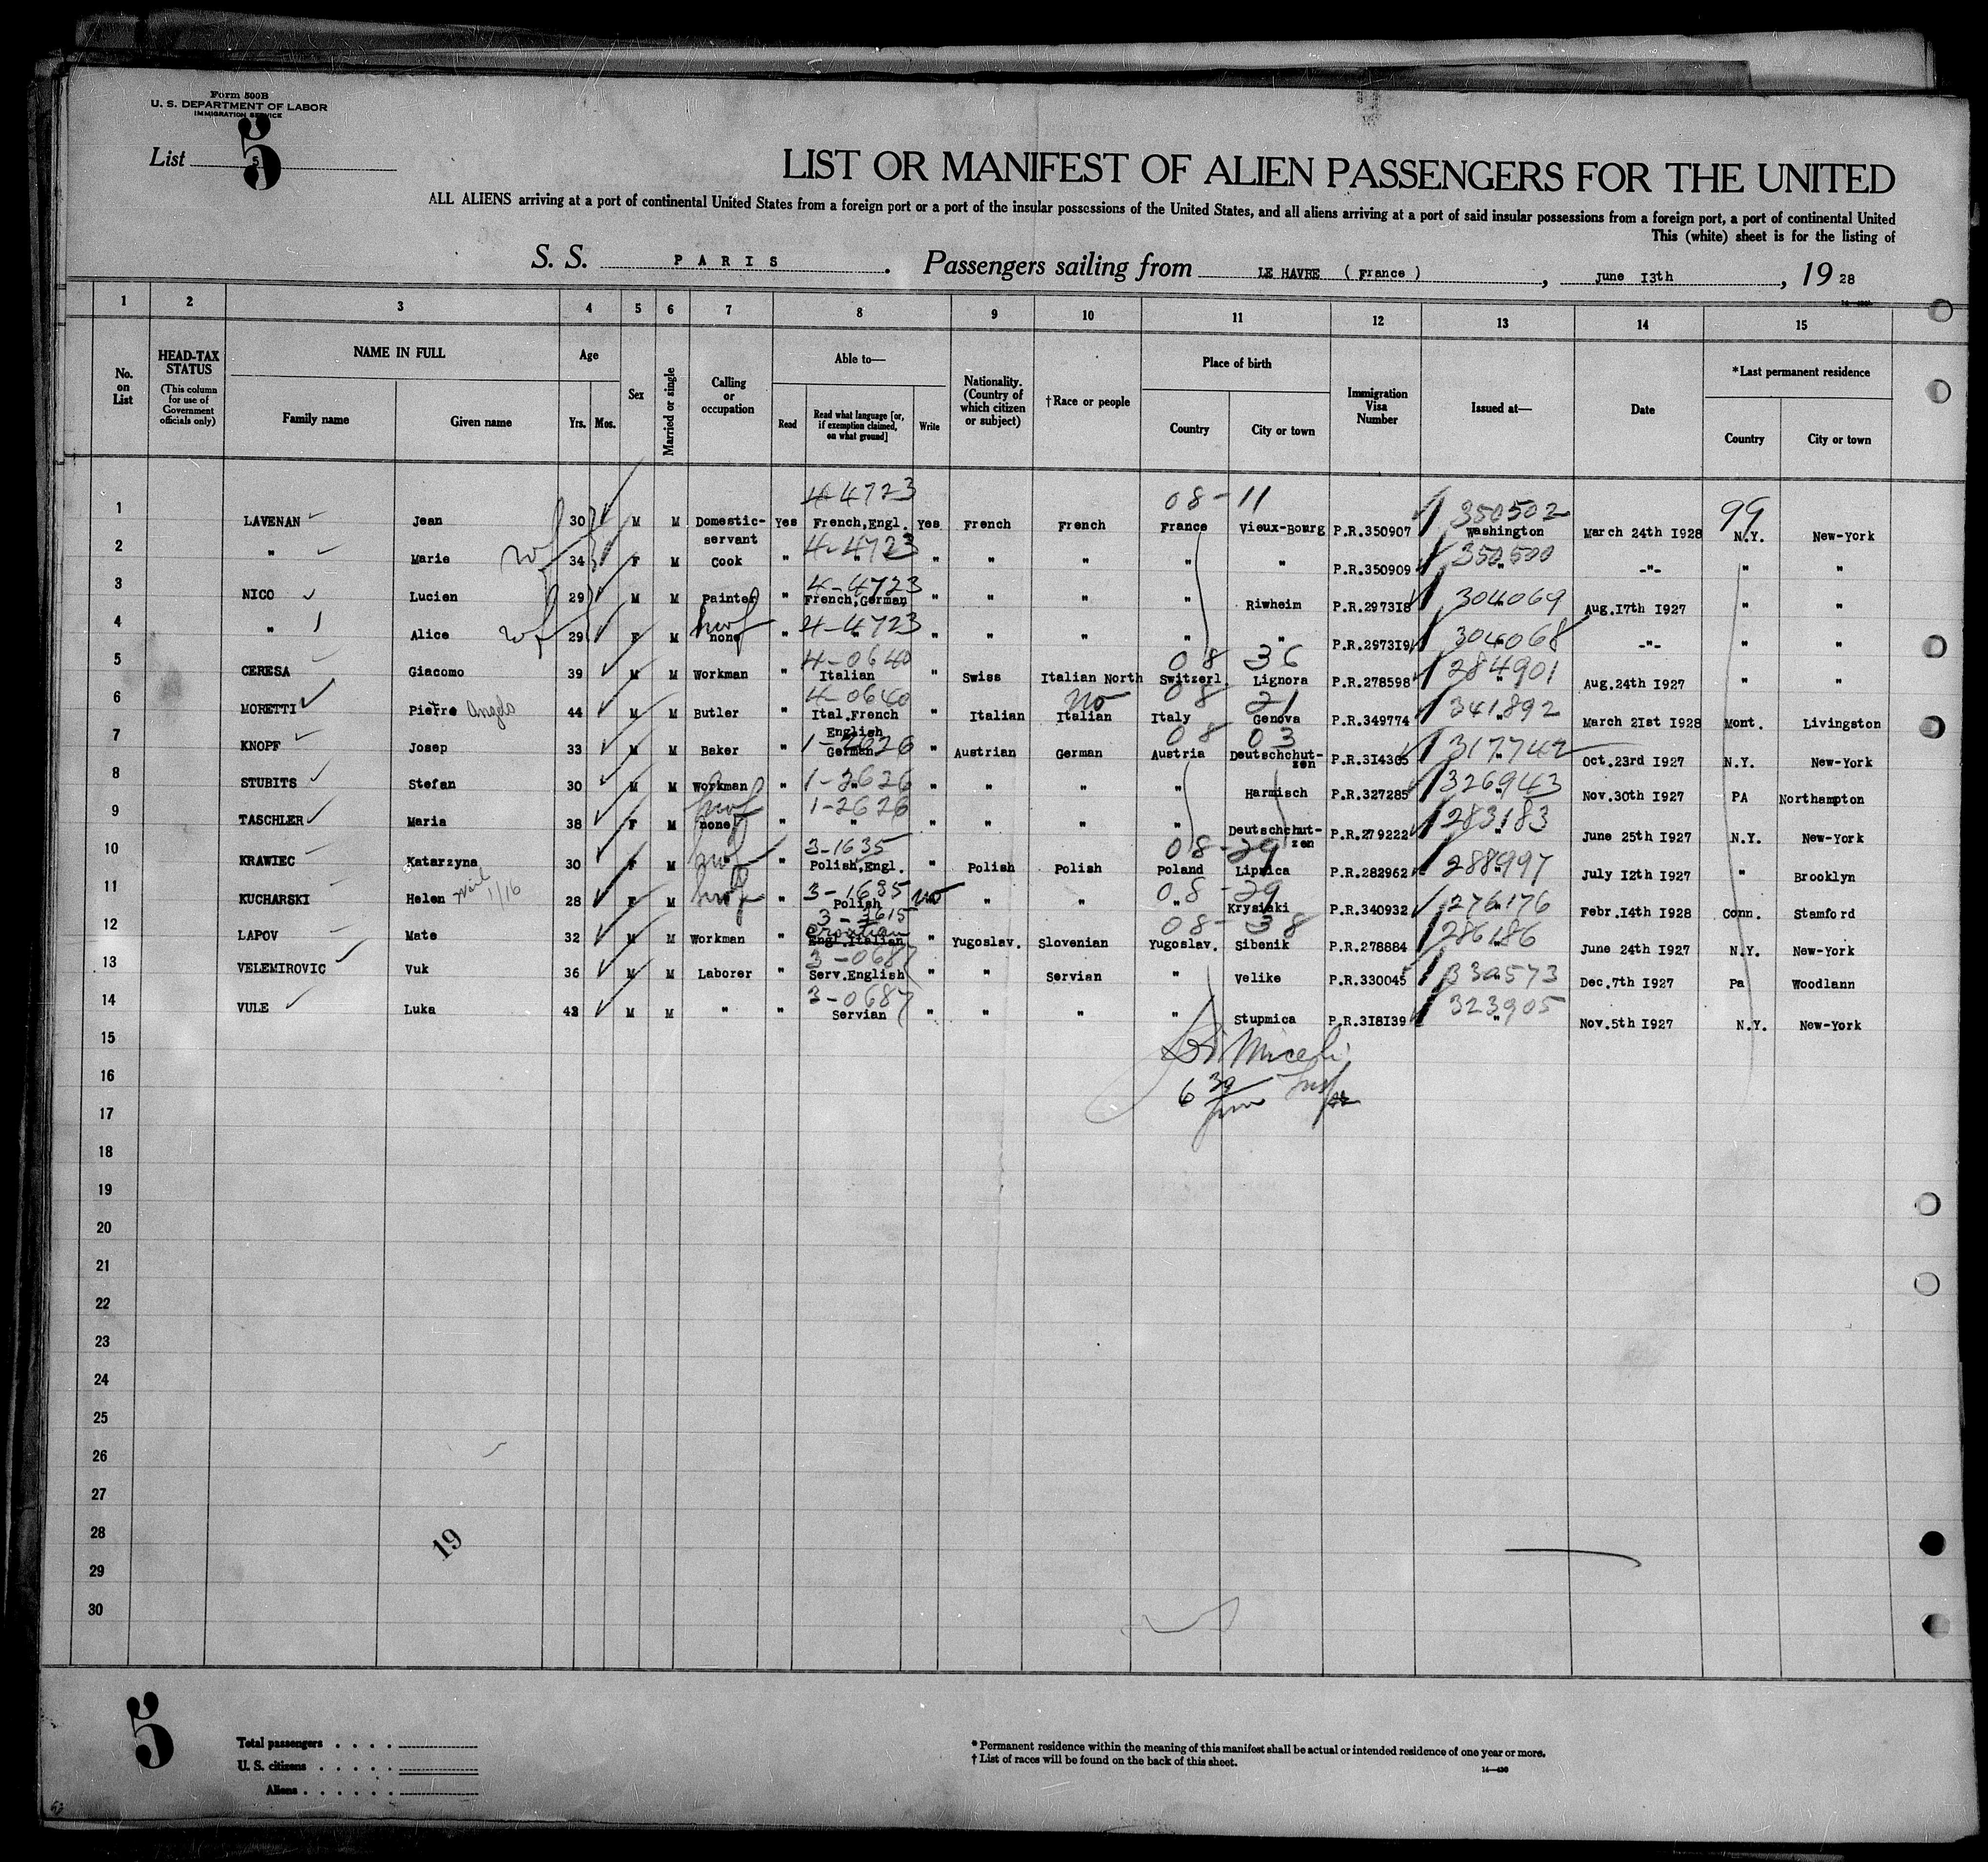 Form 500B
U. S. DEPARTMENT OF LABOR
IMMIGRATION SERVICE
5
List 5
LIST OR MANIFEST OF ALIEN PASSENGERS FOR THE UNITED
ALL ALIENS arriving at a port of continental United States from a foreign port or a port of the insular possessions of the United States, and all aliens arriving at a port of said insular possessions from a foreign port, a port of continental United
This (white) sheet is for the listing of
S. S. PARIS. Passengers sailing from LE HAVRE (France), June 13th, 1928
1 2 3 4 5 6 7 8 9 10 11 12 13 14 15
No. on List
HEAD-TAX STATUS
(This column for use of Government officials only)
NAME IN FULL
Family name
Given name
Age
Yrs. Mos.
Sex
Married or single
Calling or occupation
Able to—
Read
Read what language [or, if exemption claimed, on what ground]
Write
Nationality. (Country of which citizen or subject)
†Race or people
Place of birth
Country
City or town
Immigration Visa Number
Issued at—
Date
*Last permanent residence
Country
City or town
4-4723 08-11 350502 99
1 LAVENAN Jean 30 M M Domestic-servant Yes French,Engl. Yes French French France Vieux-Bourg P.R.350907 Washington March 24th 1928 N.Y. New-York
4-4723 350500
2 " Marie wf 34 F M Cook " " " " " " " P.R.350909 " -"- " "
4-4723 304069
3 NICO Lucien 29 M M Painter " French,German " " " " Riwheim P.R.297318 " Aug.17th 1927 " "
hwf 4-4723 304068
4 " Alice wf 29 F M none " " " " " " " P.R.297319 " -"- " "
4-0640 08 36 284901
5 CERESA Giacomo 39 M M Workman " Italian " Swiss Italian North Switzerl. Lignora P.R.278598 " Aug.24th 1927 " "
4-0640 no 08 21 341892
6 MORETTI Pietre Angelo 44 M M Butler " Ital.French English " Italian Italian Italy Genova P.R.349774 " March 21st 1928 Mont. Livingston
1-2626 08 03 317742
7 KNOPF Josep 33 M M Baker " German " Austrian German Austria Deutschchut-zen P.R.314305 " Oct.23rd 1927 N.Y. New-York
1-2626 326943
8 STUBITS Stefan 30 M M Workman " " " " " " Harmisch P.R.327285 " Nov.30th 1927 PA Northampton
hwf 1-2626 283183
9 TASCHLER Maria 38 F M none " " " " " " Deutschchut-zen P.R.279222 " June 25th 1927 N.Y. New-York
3-1635 08-29 288997
10 KRAWIEC Katarzyna 30 F M hwf " Polish,Engl. " Polish Polish Poland Lipnica P.R.282962 " July 12th 1927 " Brooklyn
3-1635 08-29 276176
11 KUCHARSKI Helen 1/16 28 F M hwf " Polish no " " " Krysiaki P.R.340932 " Febr.14th 1928 Conn. Stamford
3-3615 Croatian 08-38 286186
12 LAPOV Mate 32 M M Workman " Engl.Italian " Yugoslav. Slovenian Yugoslav. Sibenik P.R.278884 " June 24th 1927 N.Y. New-York
3-0687 330573
13 VELEMIROVIC Vuk 36 M M Laborer " Serv.English " " Servian " Velike P.R.330045 " Dec.7th 1927 Pa Woodlann
3-0687 323905
14 VULE Luka 43 M M " " Servian " " " " Stupmica P.R.318139 " Nov.5th 1927 N.Y. New-York
15
16
17
18
19
20
21
22
23
24
25
26
27
28
19
29
30
5
Total passengers
U. S. citizens
Aliens
* Permanent residence within the meaning of this manifest shall be actual or intended residence of one year or more.
† List of races will be found on the back of this sheet.
14—430